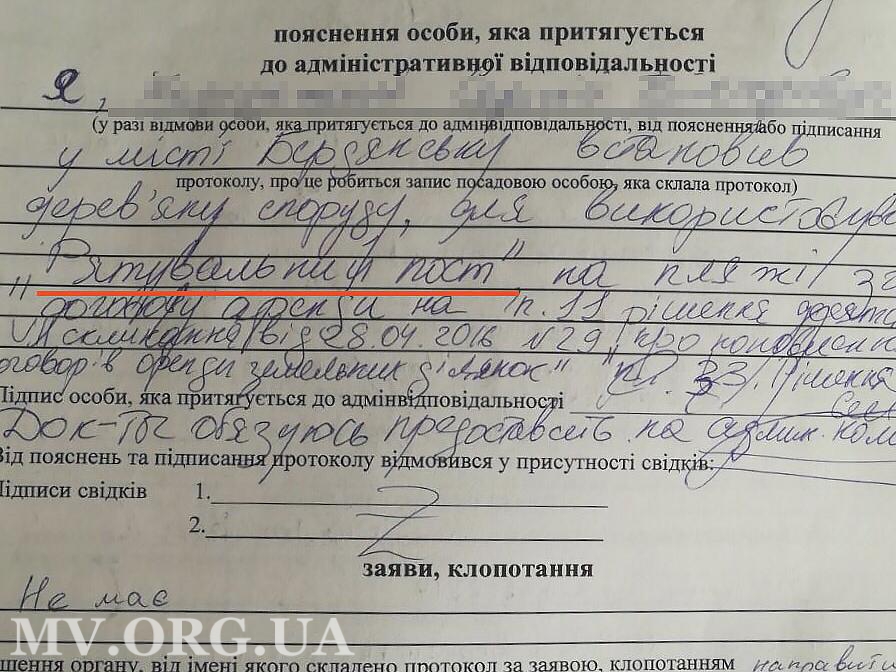 пояснення особи, яка притягується
до адміністративної відповідальності
Я,
(у разі відмови особи, яка притягується до адмінвідповідальності, від пояснення або підписання
у місті Бердянську встановив
протоколу, про це робиться запис посадовою особою, яка склала протокол)
дерев'яну споруду, для використовува
"Рятувальний пост" на пляжі з
договору оренди на п. 11 рішення десято
VII скликання від 28.04.2016 №29 "про поновлення
оговорів оренди земельних ділянок" рішення
Підпис особи, яка притягується до адмінвідповідальності
Док-ты обязуюсь предоставить на админ. ком
Від пояснень та підписання протоколу відмовився у присутності свідків:
Підписи свідків 1.
2.
заяви, клопотання
Не має
MV.ORG.UA
шення органу, від імені якого складено протокол за заявою, клопотанням направити